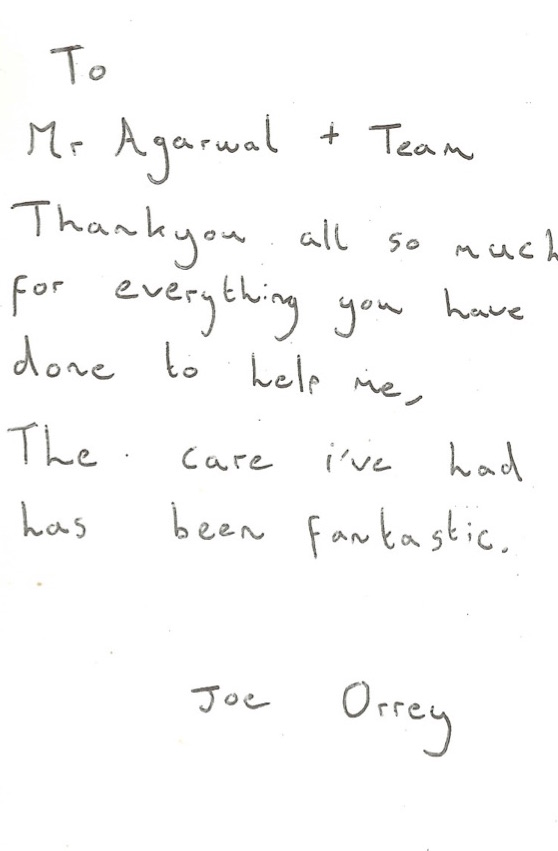 To
Mr Agarwal + Team
Thankyou all so much
for everything you have
done to help me,
The care i've had
has been fantastic.
Joe Orrey